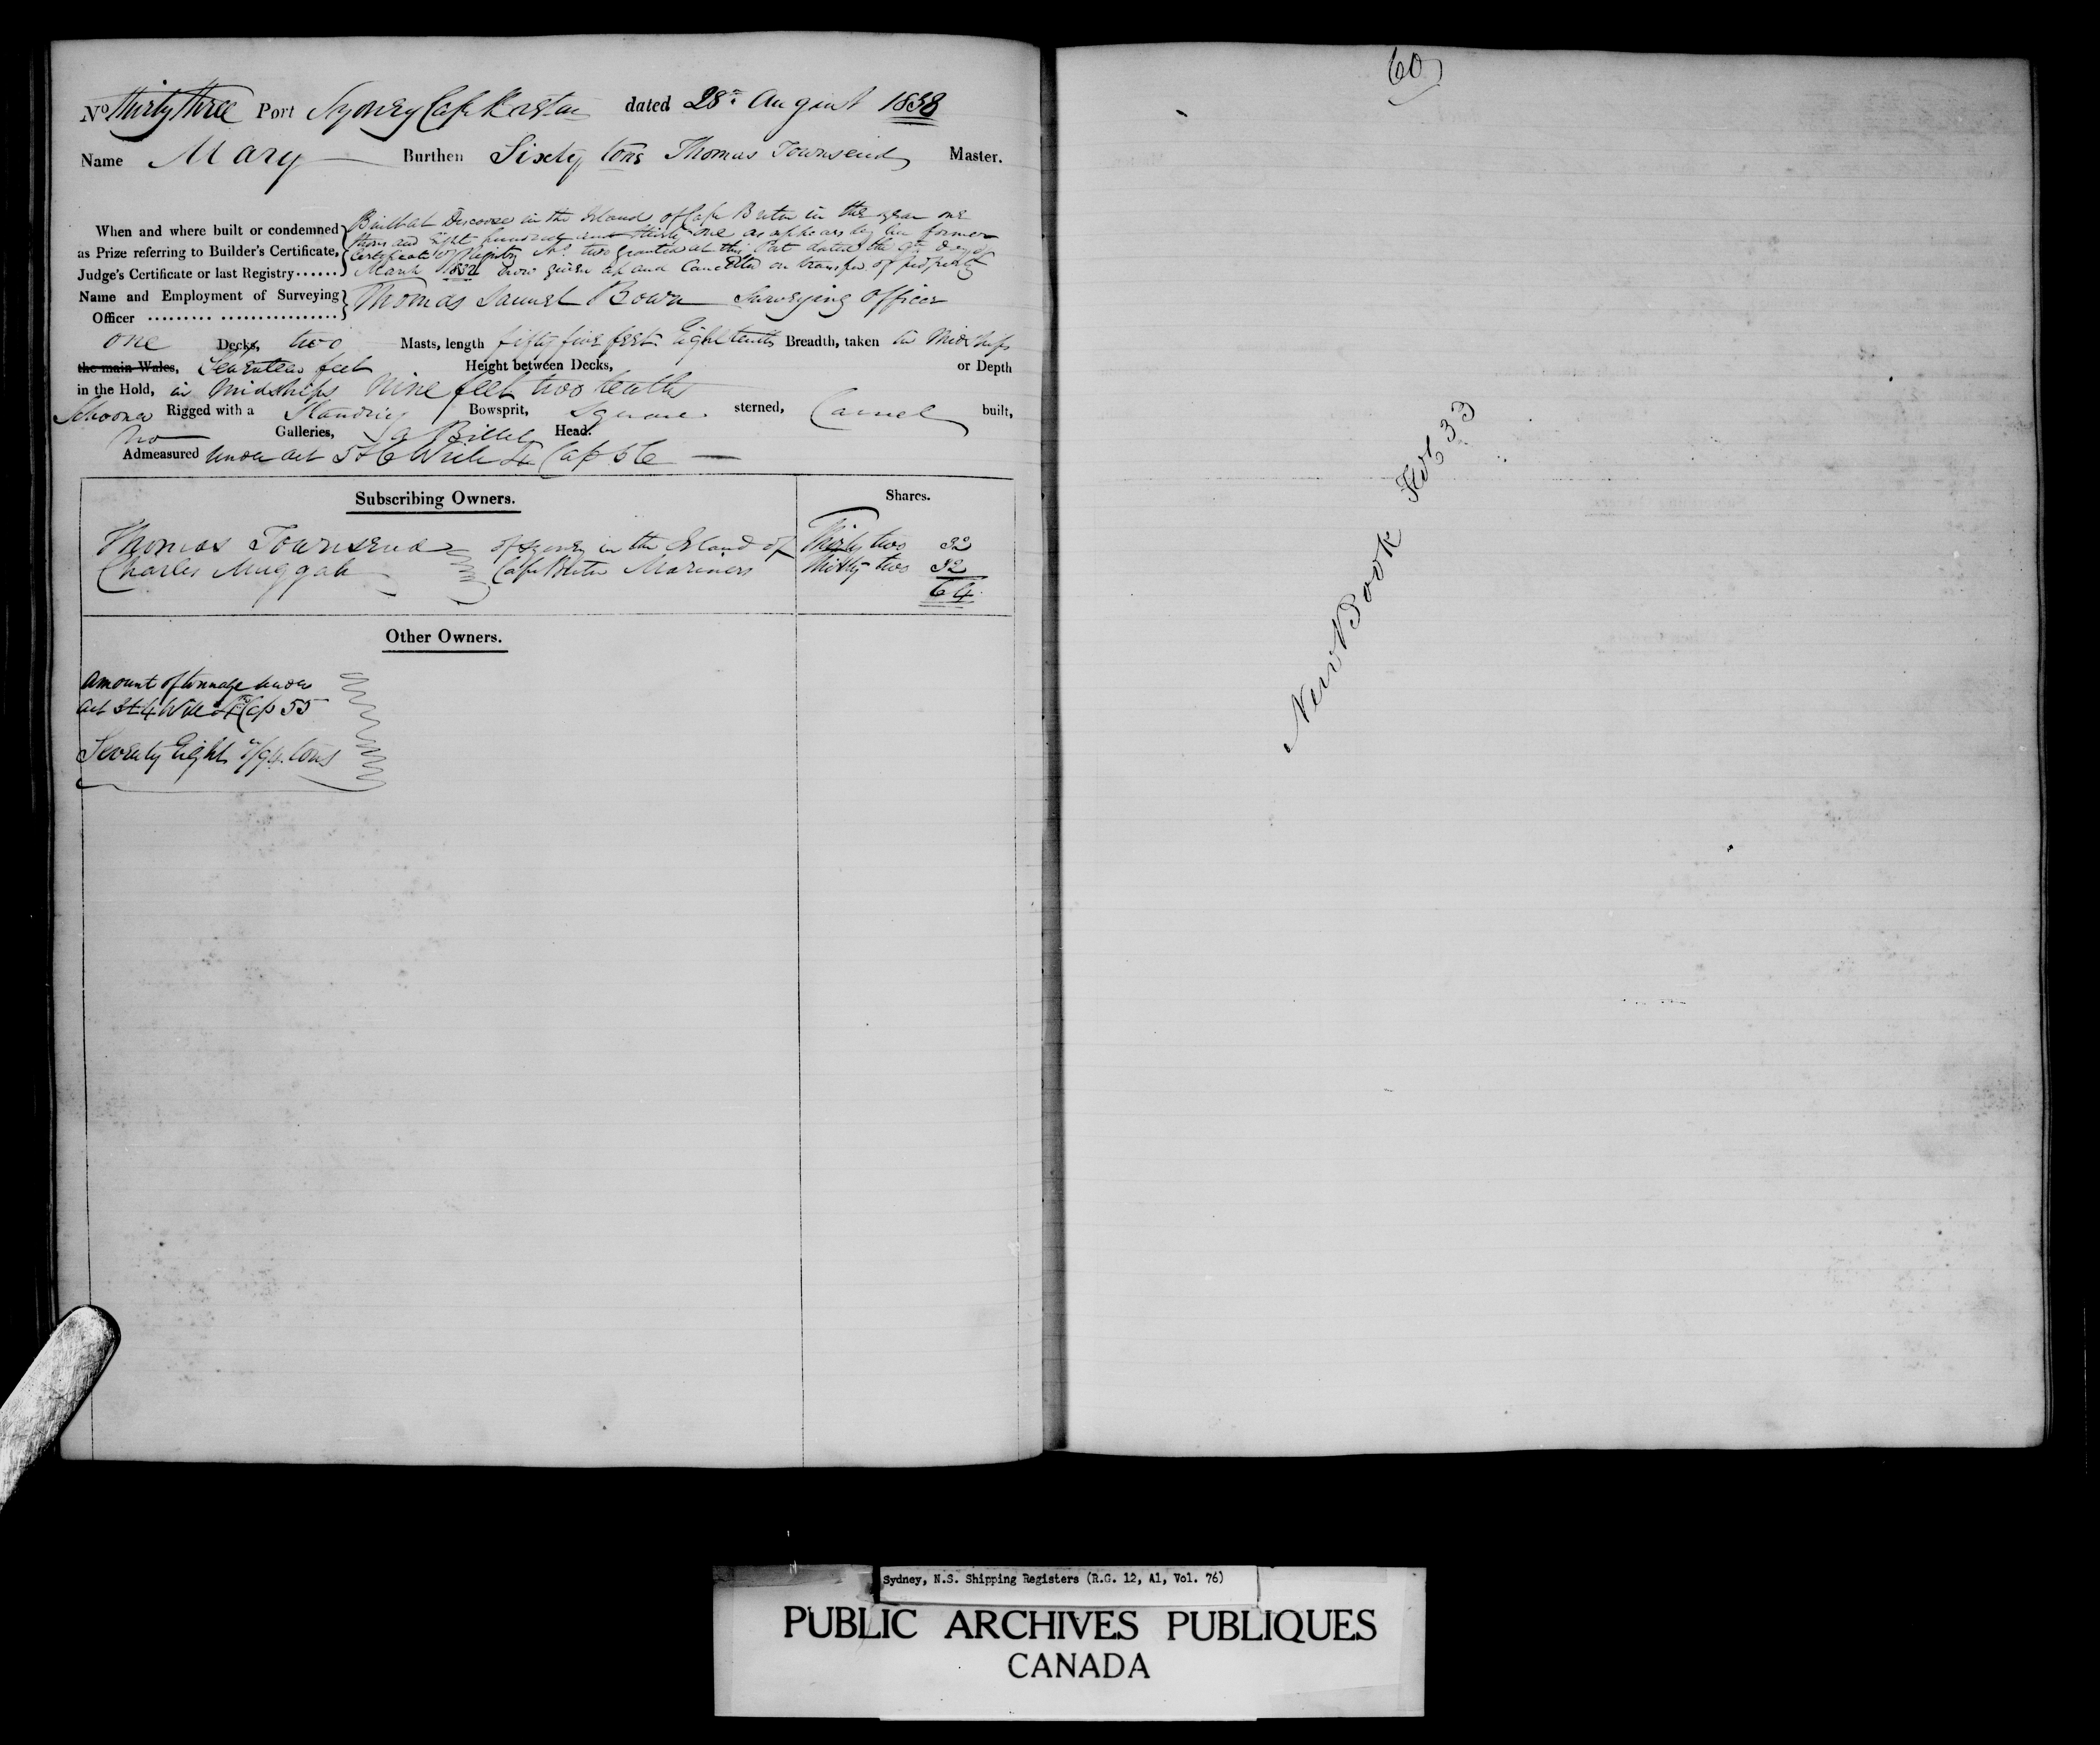 No thirty three Port Sydney Cape Breton dated 28th August 1838
Name Mary Burthen Sixty tons Thomas Townsend Master.
When and where built or condemned as Prize referring to Builder's Certificate, Judge's Certificate or last Registry......
Built at in the Island of Cape Breton in the year one
thousand Eight hundred and thirty one as appears by her former
Certificate of Registry No two granted at this Port dated the 9th day of
March 1832 now given up and Cancelled on transfer of property
Name and Employment of Surveying Officer ......... ................ Thomas Samuel Bown Surveying Officer
one Decks, two Masts, length fifty five feet Eight tenths Breadth, taken in Midships
the main Wales, Seventeen feet Height between Decks, or Depth
in the Hold, in Midships Nine feet two tenths
Schooner Rigged with a Standing Bowsprit, Square sterned, Carvel built,
No Galleries, a Billet Head.
Admeasured Under act 5 & 6 Will 4 Cap 56
Subscribing Owners. Shares.
Thomas Townsend of Sydney in the Island of Thirty two 32
Charles Muggah Cape Breton Mariners Thirty two 32
64
Other Owners.
Amount of tonnage under
act 3 & 4 Will 4 Cap 55
Seventy Eight /94 tons
60
New Book Fol 33
Sydney, N.S. Shipping Registers (R.G. 12, A1, Vol. 76)
PUBLIC ARCHIVES PUBLIQUES
CANADA